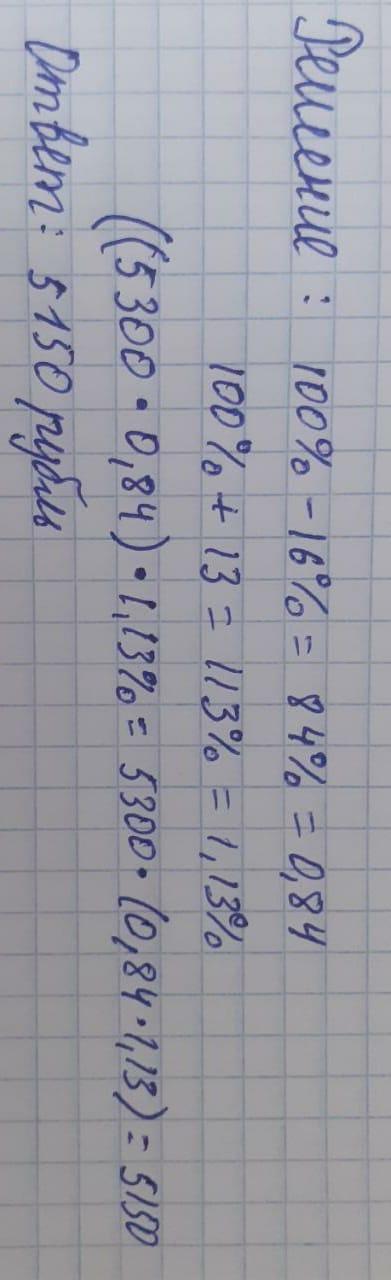 Решение: 100% - 16% = 84% = 0,84
100% + 13 = 113% = 1,13%
((5300 · 0,84) · 1,13% = 5300 · (0,84 · 1,13) = 5150
Ответ: 5150 рубль